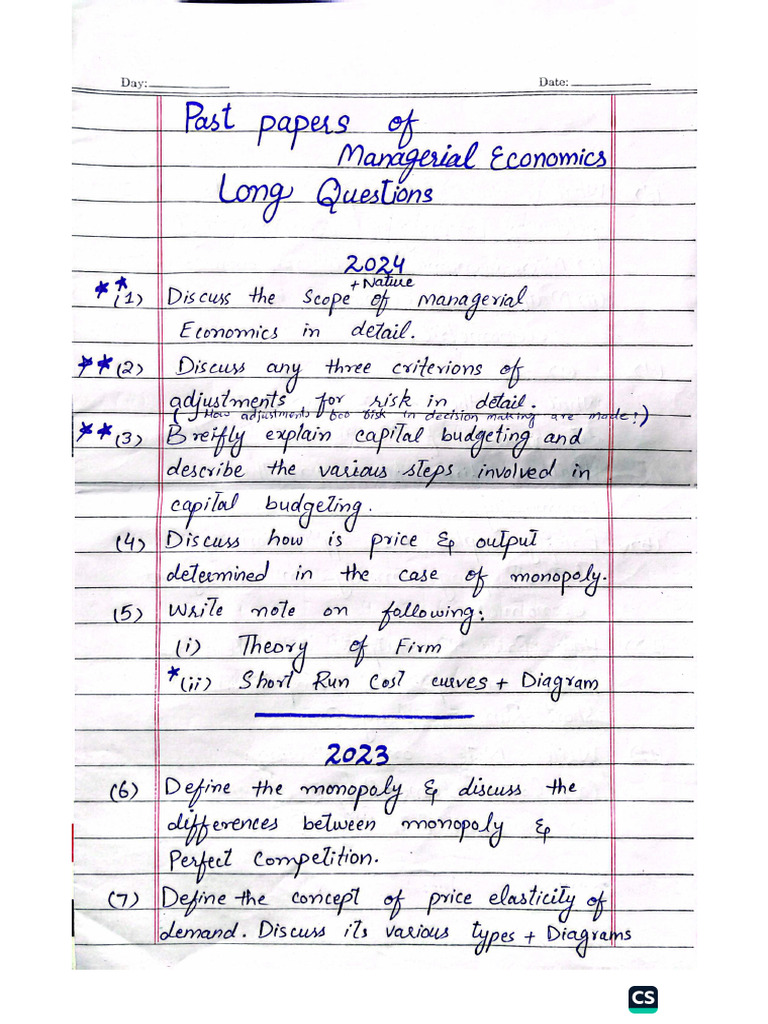 Day:
Date:
Past papers of
Managerial Economics
Long Questions
2024
+ Nature
** (1) Discuss the scope of managerial
Economics in detail.
** (2) Discuss any three criterions of
adjustments for risk in detail.
(How adjustments foo risk in decision making are made!)
** (3) Breifly explain capital budgeting and
describe the various steps involved in
capital budgeting.
(4) Discuss how is price & output
determined in the case of monopoly.
(5) Write note on following:
(i) Theory of Firm
*(ii) Short Run Cost curves + Diagram
2023
(6) Define the monopoly & discuss the
differences between monopoly &
Perfect Competition.
(7) Define the concept of price elasticity of
demand. Discuss its various types + Diagrams
CS